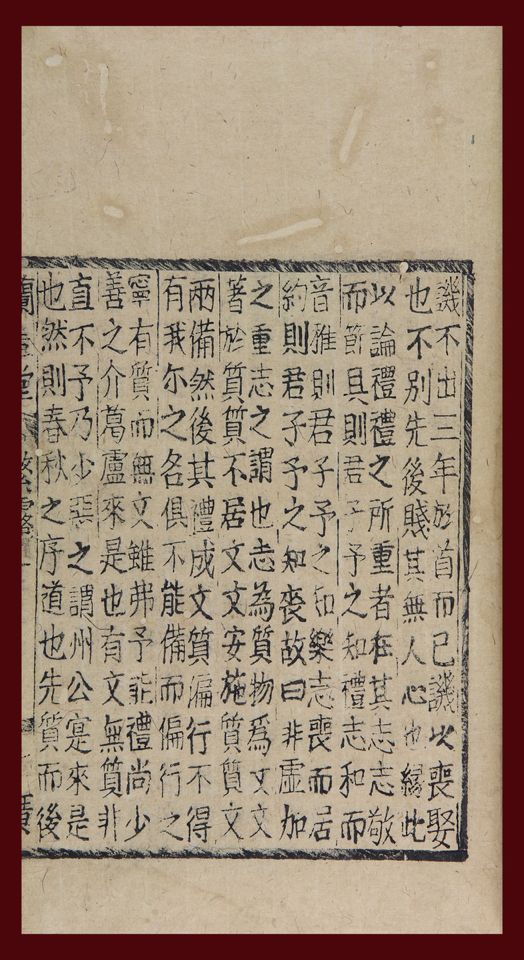 譏不出三年於首而已譏以喪娶
也不別先後賤其無人心也縁此
以論禮禮之所重者在其志志敬
而節具則君子予之知禮志和而
音雅則君子予之知樂志喪而居
約則君子予之知喪故曰非虛加
之重志之謂也志為質物爲文文
著於質質不居文文安施質質文
兩備然後其禮成文質偏行不得
有我尓之名俱不能備而偏行之
寧有質而無文雖弗予能禮尚少
善之介葛盧來是也有文無質非
直不予乃少惡之謂州公寔來是
也然則春秋之序道也先質而後